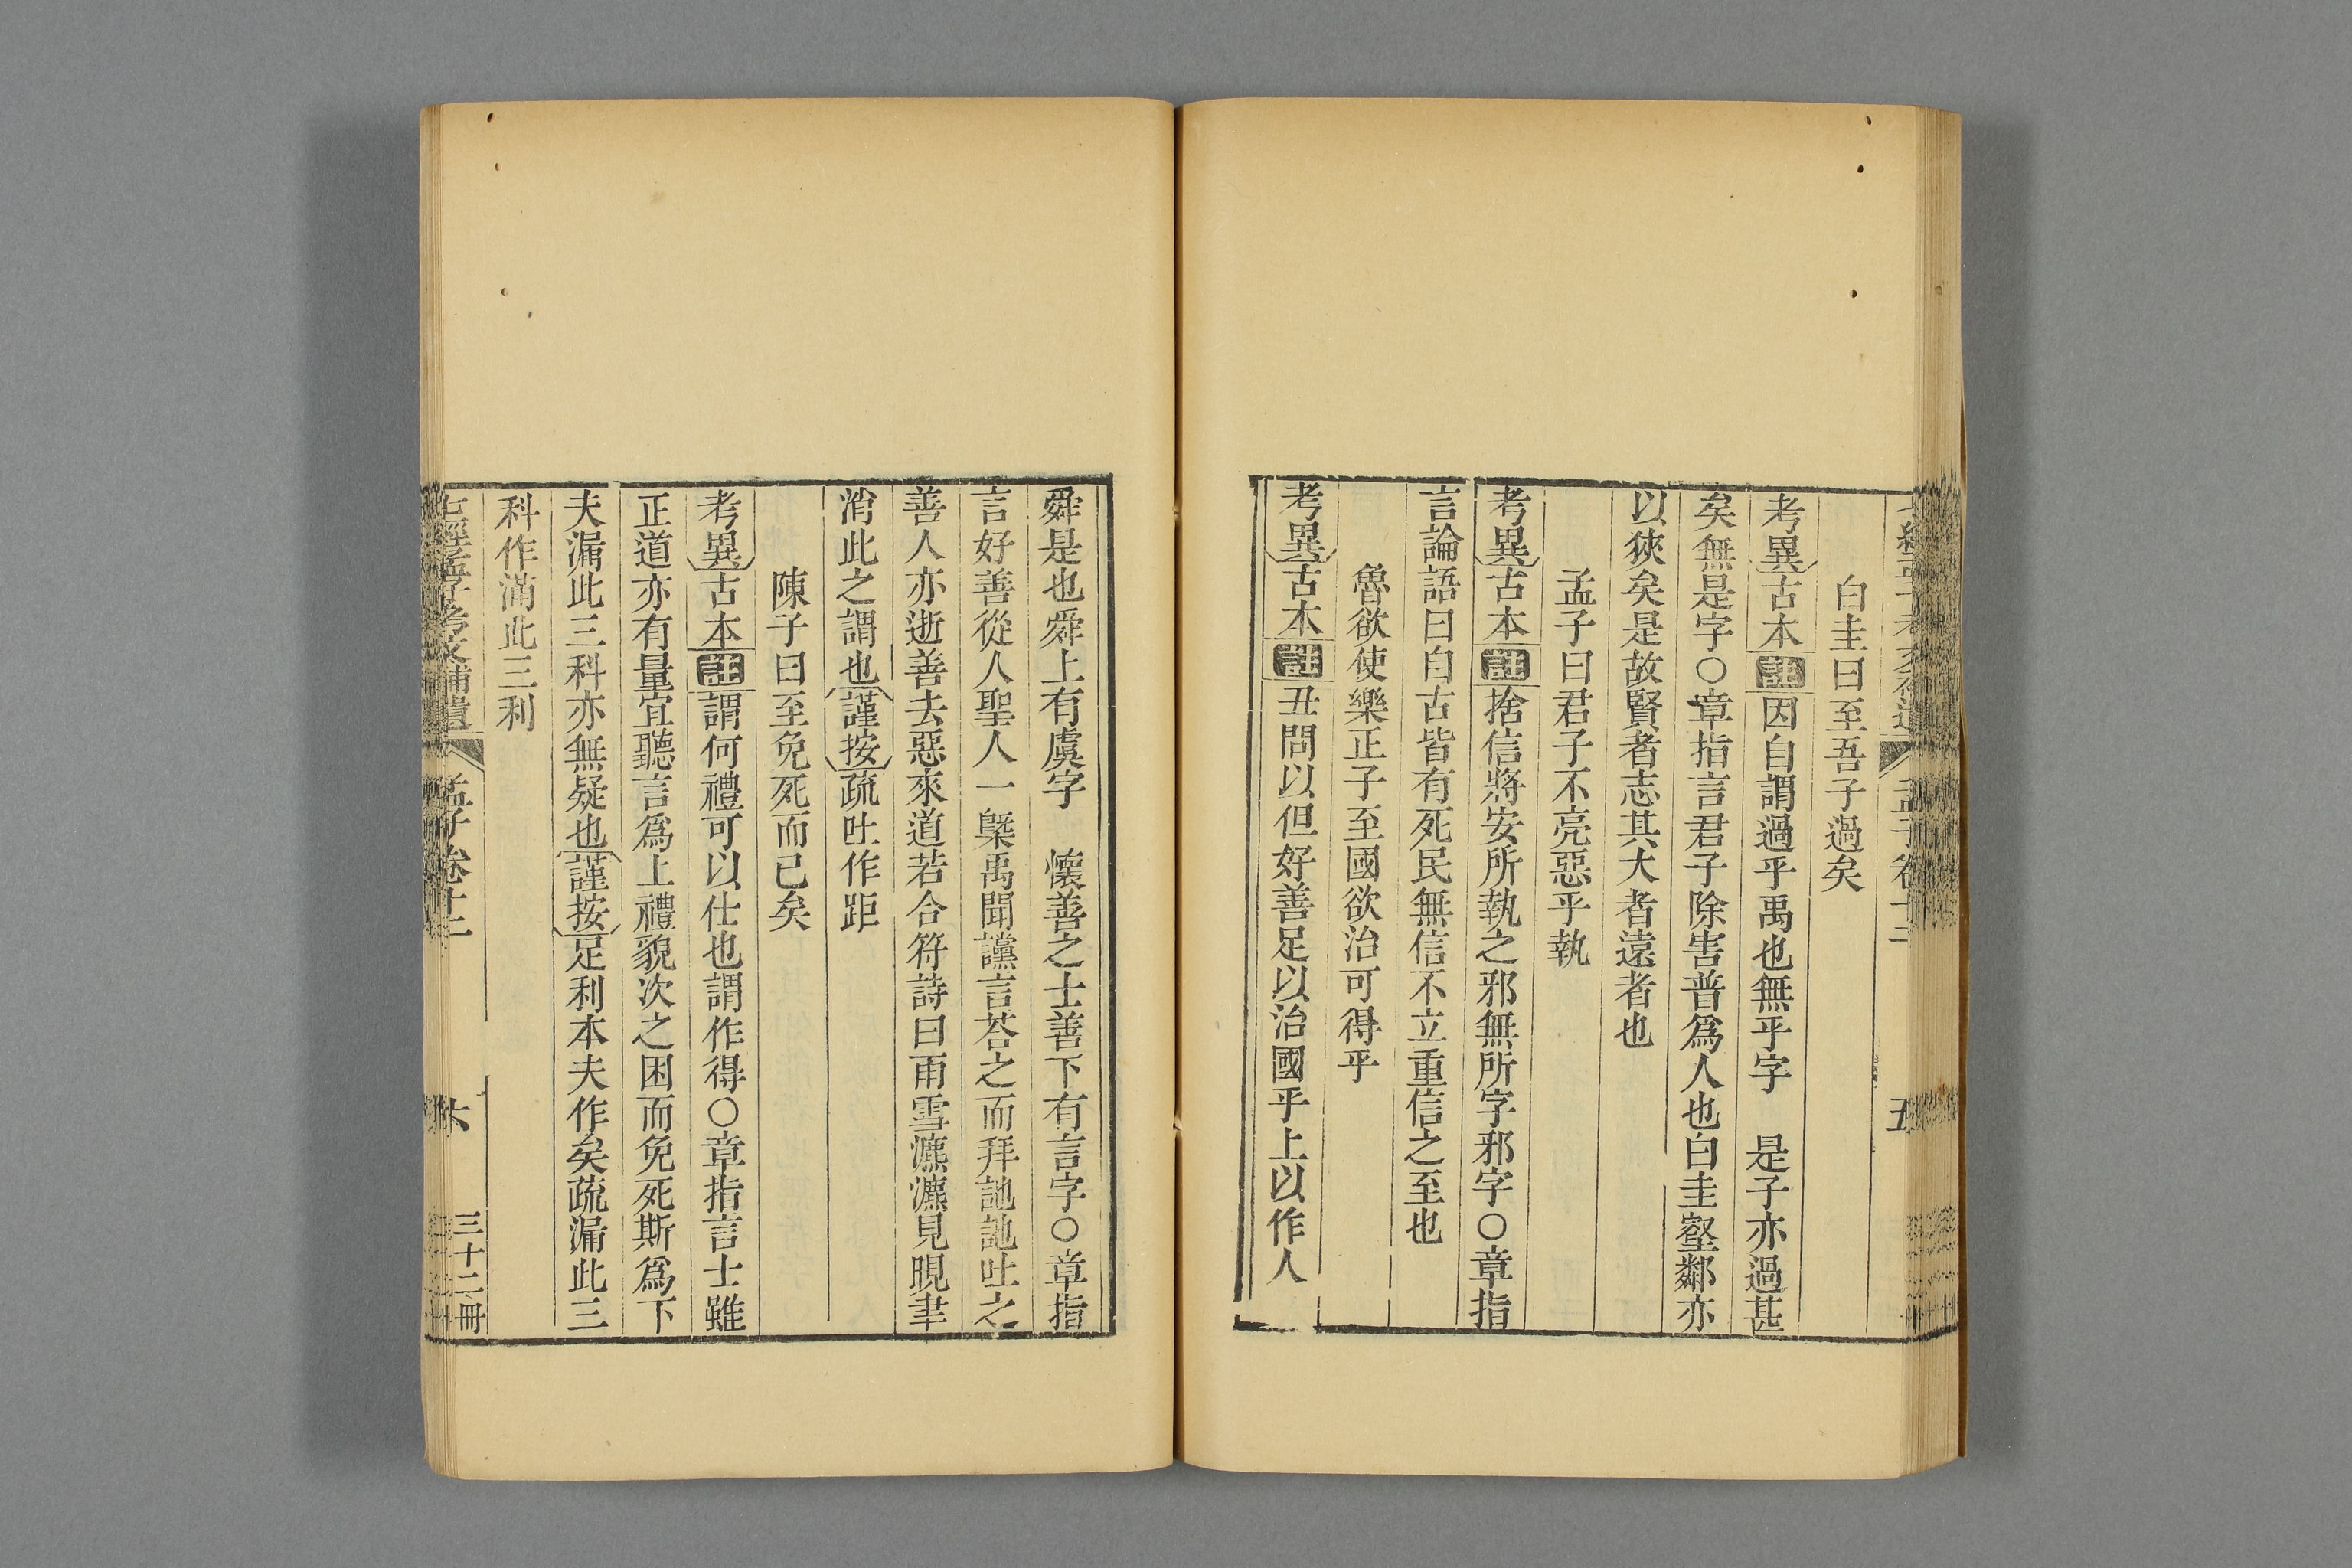 白圭曰至吾子過矣
考異古本註因自謂過乎禹也無乎字　是子亦過甚
矣無是字○章指言君子除害普爲人也白圭壑鄰亦
以狹矣是故賢者志其大者遠者也
孟子曰君子不亮惡乎執
考異古本註捨信將安所執之邪無所字邪字○章指
言論語曰自古皆有死民無信不立重信之至也
魯欲使樂正子至國欲治可得乎
考異古本註丑問以但好善足以治國乎上以作人
舜是也舜上有虞字　懷善之士善下有言字○章指
言好善從人聖人一槩禹聞讜言荅之而拜訑訑吐之
善人亦逝善去惡來道若合符詩曰雨雪瀌瀌見晛聿
消此之謂也謹按疏吐作距
陳子曰至免死而已矣
考異古本註謂何禮可以仕也謂作得○章指言士雖
正道亦有量宜聽言爲上禮貌次之困而免死斯爲下
夫漏此三科亦無疑也謹按足利本夫作矣疏漏此三
科作滿此三利
七經孟子考文補遺　孟子卷十二　六　三十二冊